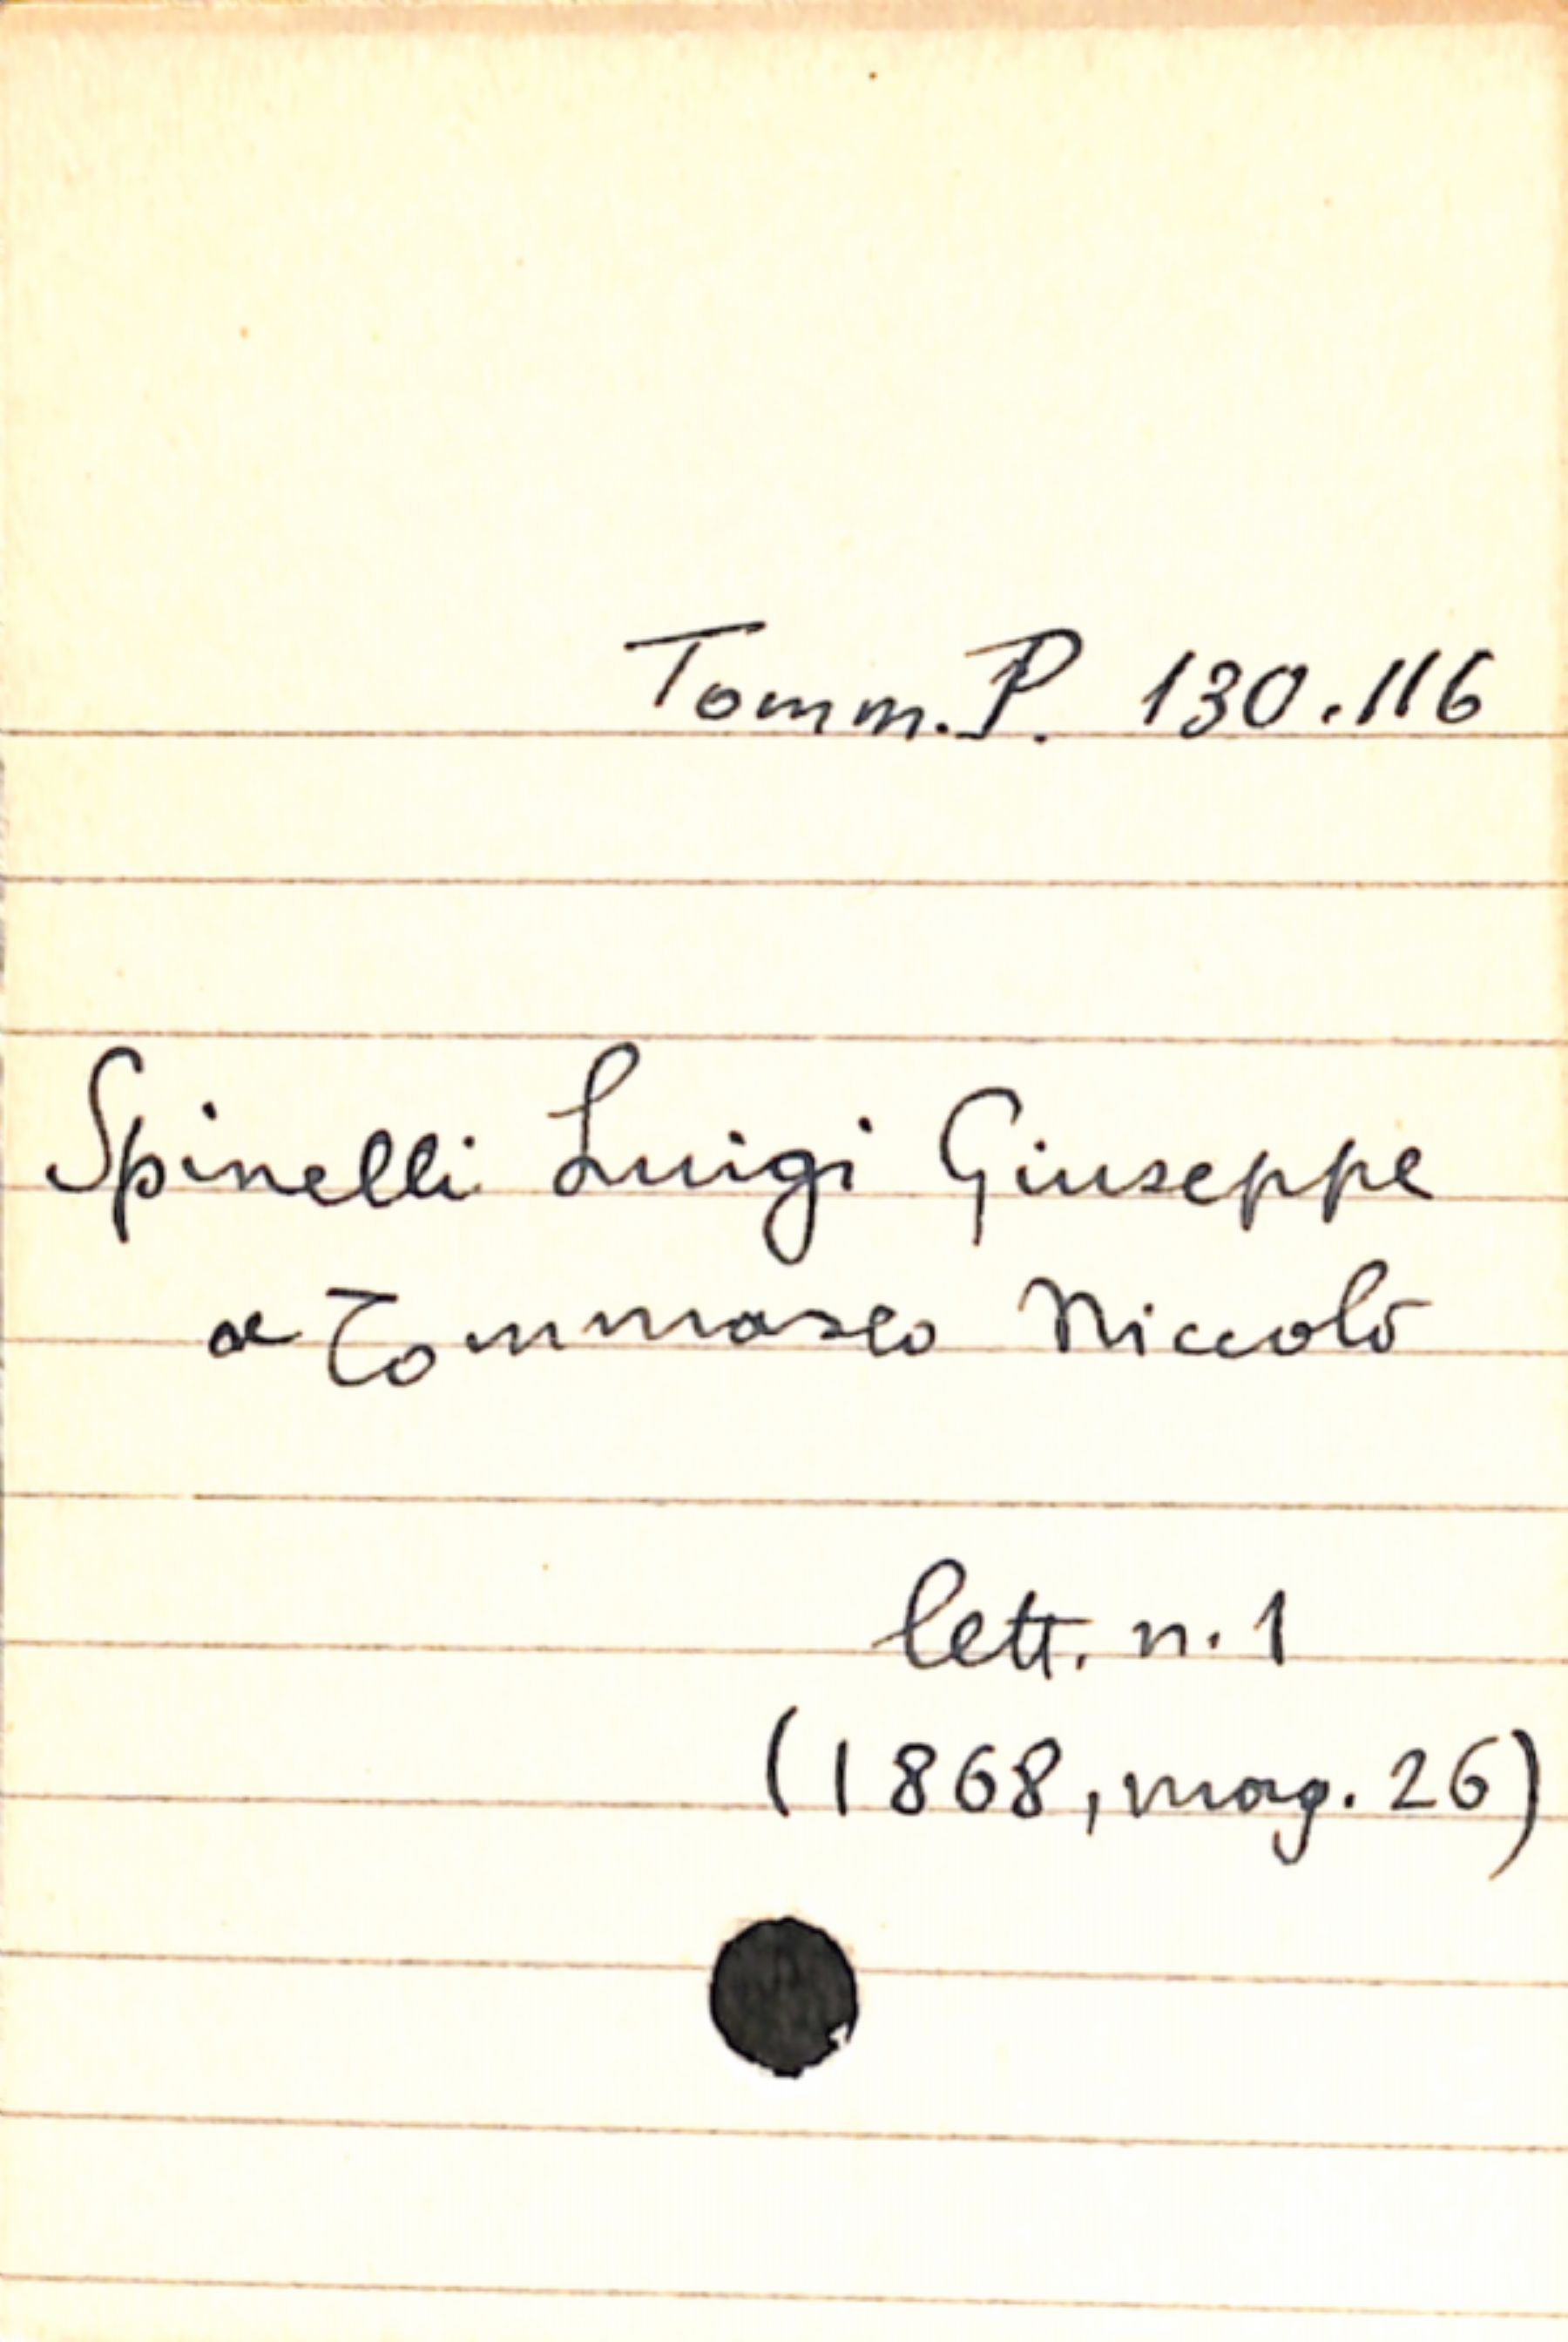 Tomm. P. 130.116
Spinelli Luigi Giuseppe
a Tommaseo Niccolò
lett. n. 1
(1868, mag. 26)